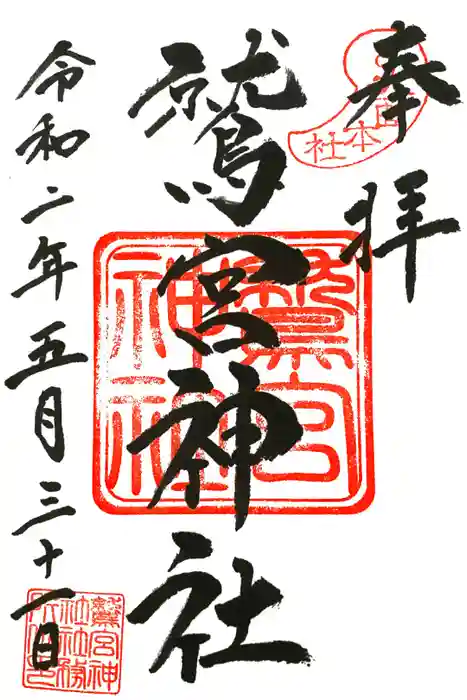 奉拝
鷲宮神社
令和二年五月三十一日
鷲宮神社
本社
鷲宮神社社務所之印